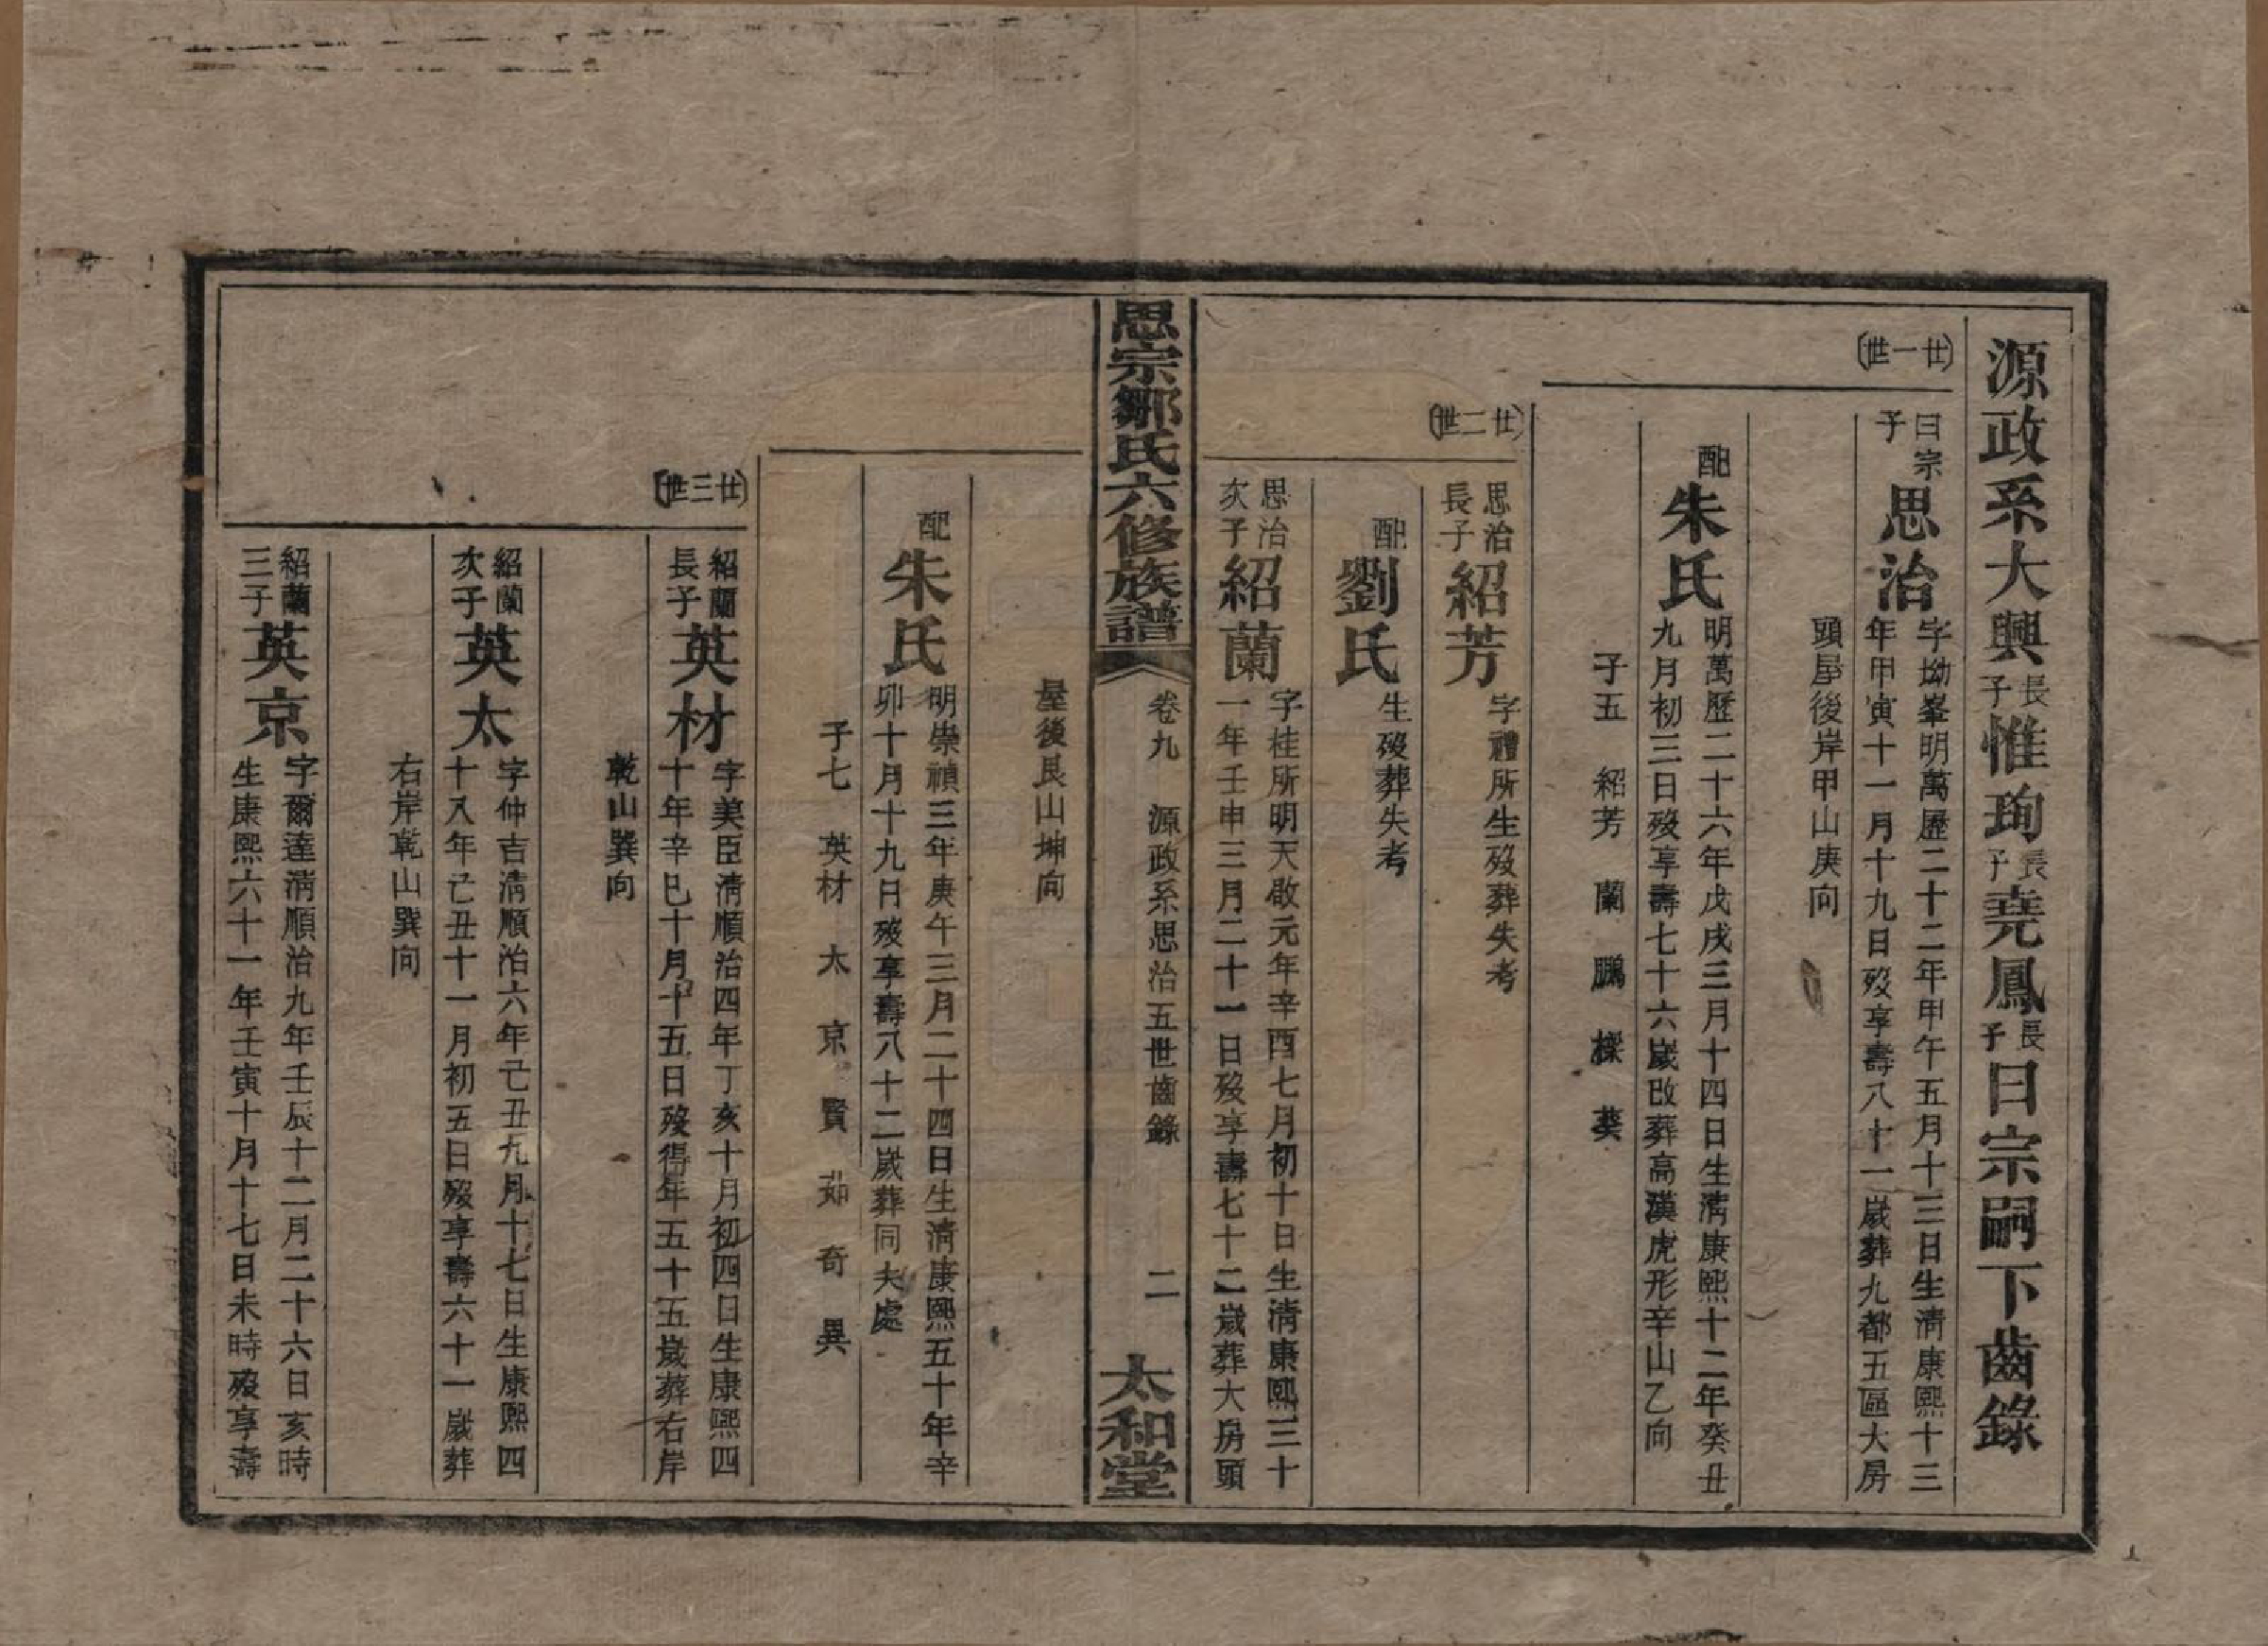 源政系大興長子惟珣長子堯鳳長子曰宗嗣下齒錄
廿一世
曰宗子
思治
字坳峯明萬歷二十二年甲午五月十三日生淸康熙十三
年甲寅十一月十九日歿享壽八十一歲葬九都五區大房
頭屋後岸甲山庚向
配
朱氏
明萬歷二十六年戊戌三月十四日生淸康熙十二年癸丑
九月初三日歿享壽七十六歲改葬高漢虎形辛山乙向
子五 紹芳 蘭 鵬 𣛴 葵
廿二世
思治長子
紹芳
字禮所生歿葬失考
配
劉氏
生歿葬失考
思治次子
紹蘭
字桂所明天啟元年辛酉七月初十日生淸康熙三十
一年壬申三月二十一日歿享壽七十二歲葬大房頭
思宗鄒氏六修族譜
卷九 源政系思治五世齒錄
二
太和堂
屋後艮山坤向
配
朱氏
明崇禎三年庚午三月二十四日生淸康熙五十年辛
卯十月十九日歿享壽八十二歲葬同夫處
子七 英材 太 京 賢 茹 奇 異
廿三世
紹蘭長子
英材
字美臣淸順治四年丁亥十月初四日生康熙四
十年辛巳十月十五日歿得年五十五歲葬右岸
乾山巽向
紹蘭次子
英太
字仲吉淸順治六年己丑九月十七日生康熙四
十八年己丑十一月初五日歿享壽六十一歲葬
右岸乾山巽向
紹蘭三子
英京
字爾達淸順治九年壬辰十二月二十六日亥時
生康熙六十一年壬寅十月十七日未時歿享壽